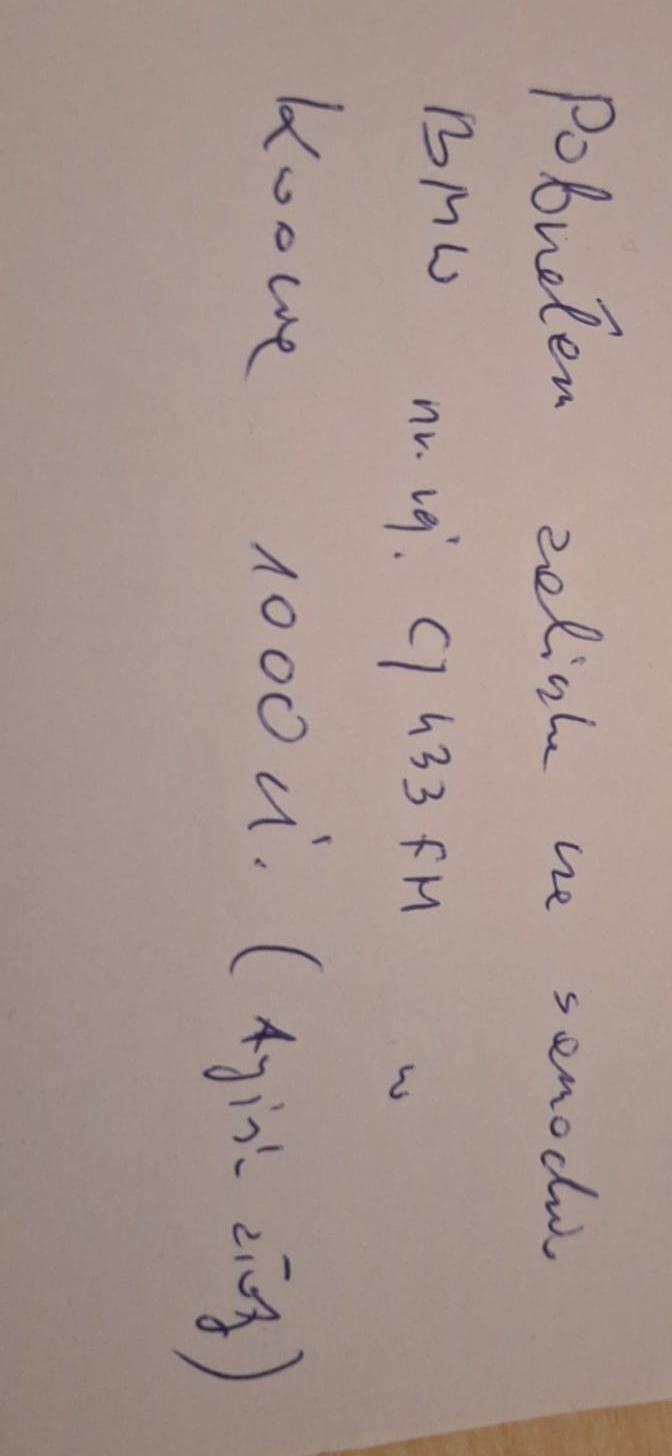 Pobrałem zaliczkę na samochód
BMW nr. rej. CJ 433 FM w
kwocie 1000 zł. (tysiąc złoty)